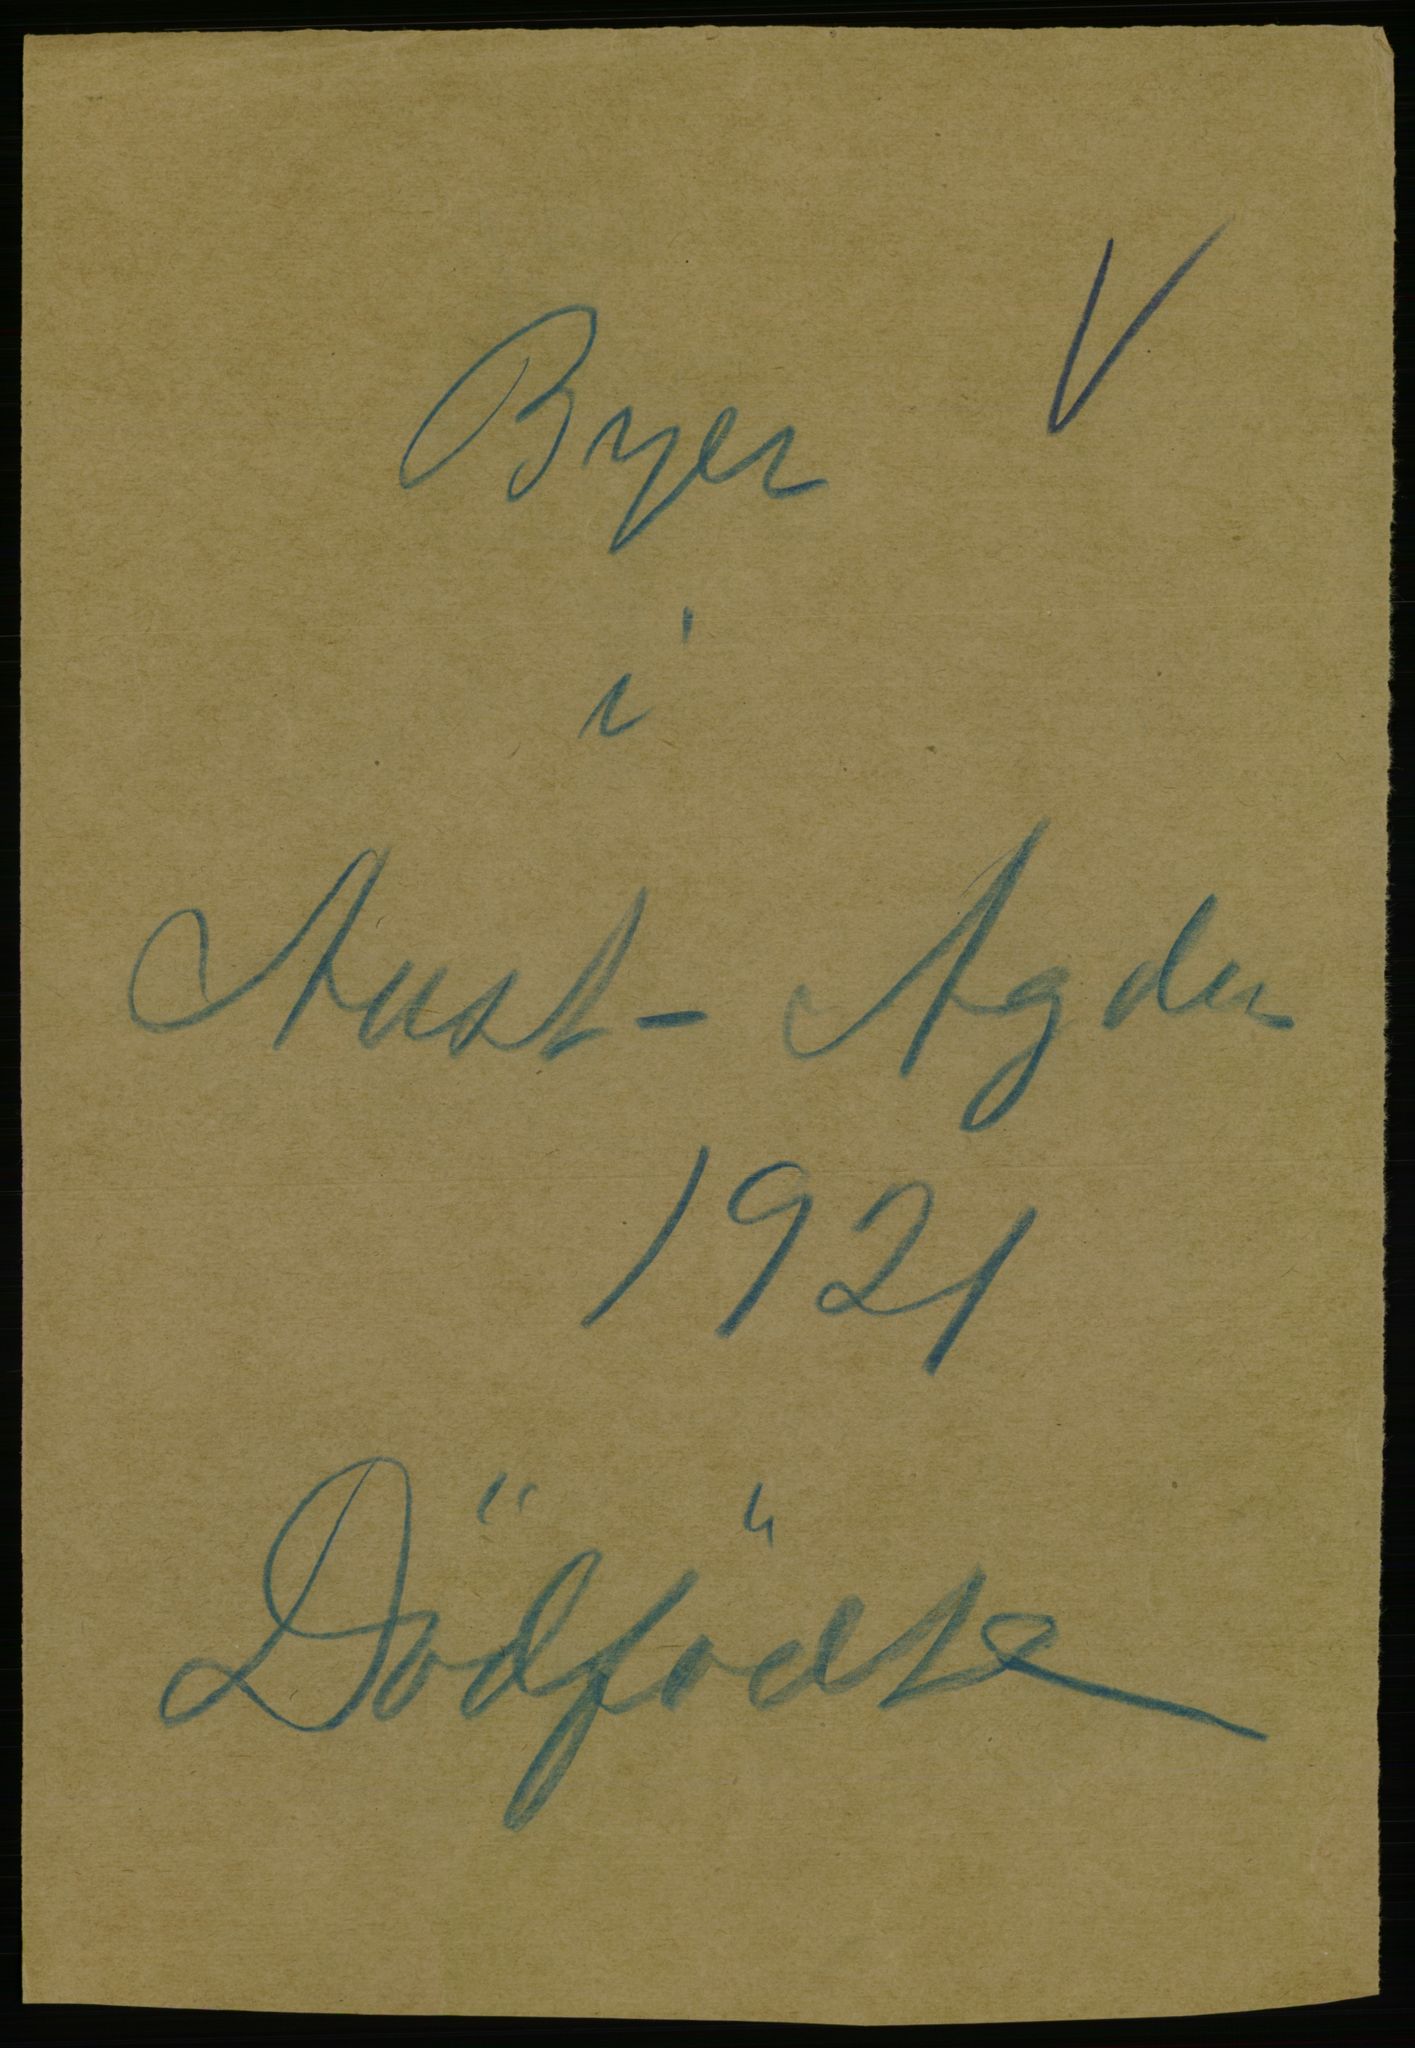 V
Byer
i
Aust-Agder
1921
Dödfödte